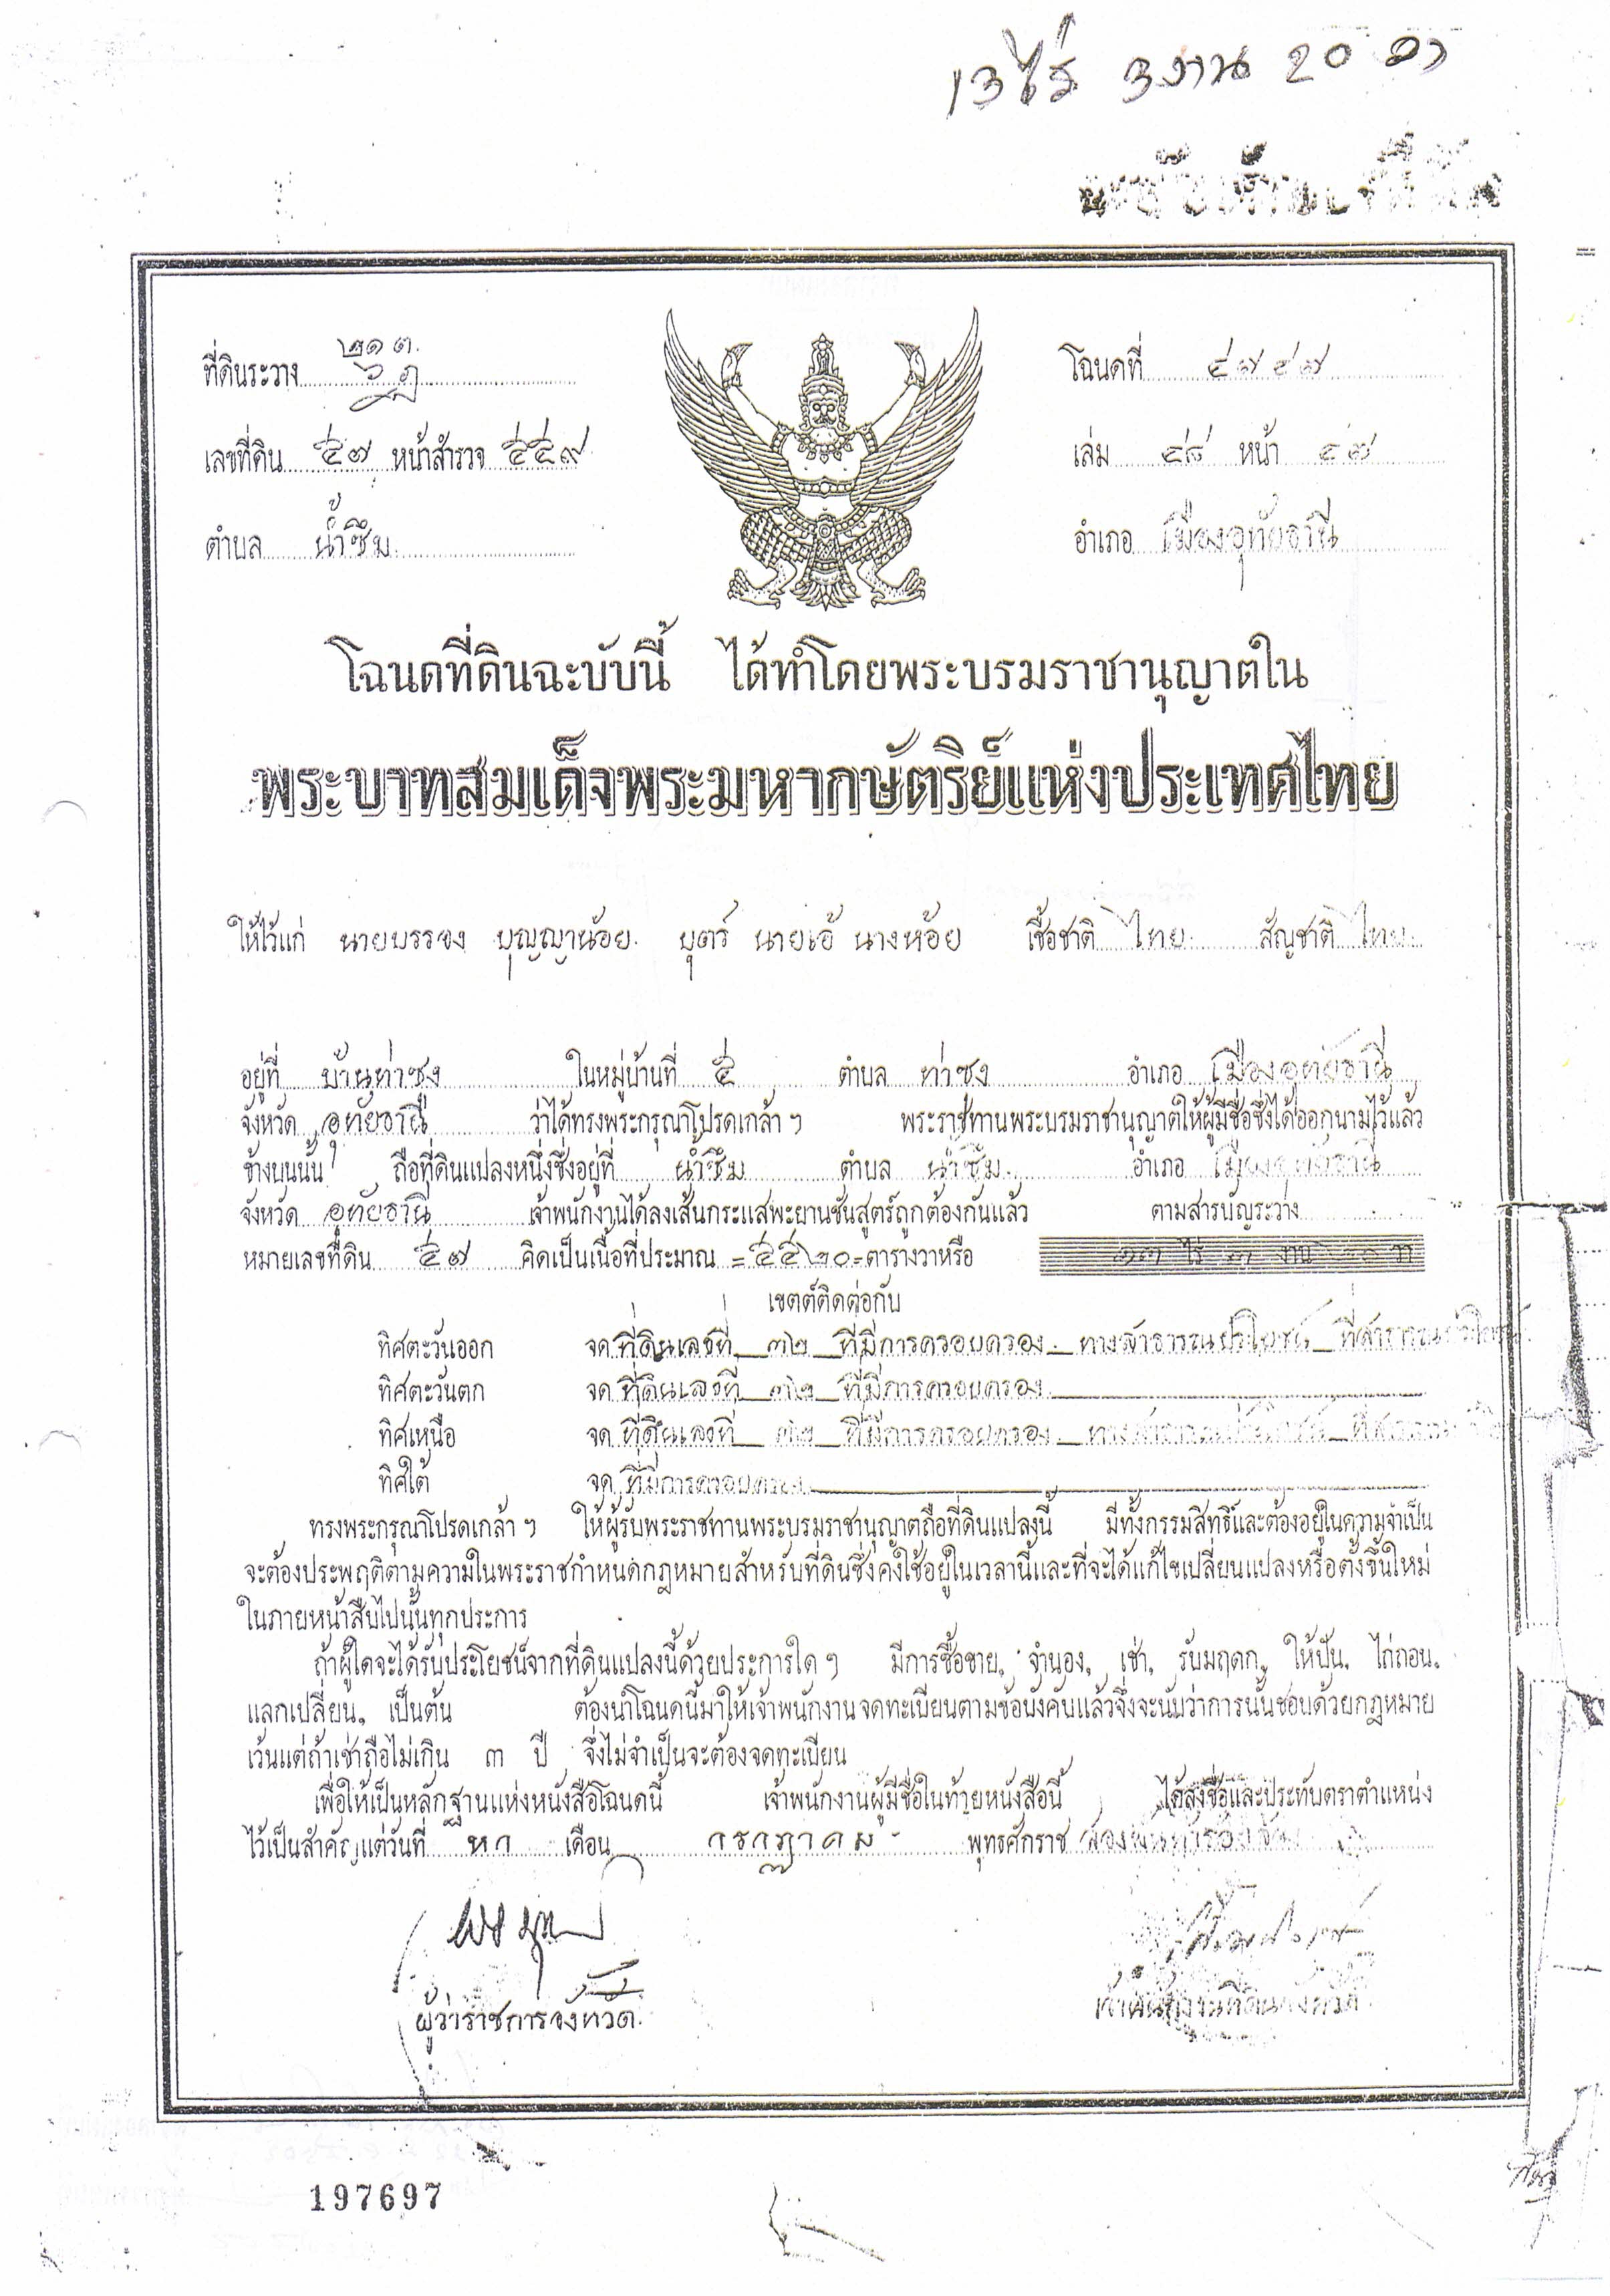 13 ไร่ 3 งาน 20 วา
ที่ดินระวาง ๒๑ ต.
๖ ฎ
โฉนดที่ ๔๗๙๗
เลขที่ดิน ๕๗ หน้าสำรวจ ๕๕๙
เล่ม ๔๘ หน้า ๔๗
ตำบล น้ำซึม
อำเภอ เมืองอุทัยธานี
โฉนดที่ดินฉะบับนี้ ได้ทำโดยพระบรมราชานุญาตใน
พระบาทสมเด็จพระมหากษัตริย์แห่งประเทศไทย
ให้ไว้แก่ นายบรรจง บุญญาน้อย บุตร์ นายเอ้ นางห้อย เชื้อชาติ ไทย สัญชาติ ไทย
อยู่ที่ บ้านท่าซุง ในหมู่บ้านที่ ๕ ตำบล ท่าซุง อำเภอ เมืองอุทัยธานี
จังหวัด อุทัยธานี ว่าได้ทรงพระกรุณาโปรดเกล้า ฯ พระราชทานพระบรมราชานุญาตให้ผู้มีชื่อซึ่งได้ออกนามไว้แล้ว
ข้างบนนั้น ถือที่ดินแปลงหนึ่งซึ่งอยู่ที่ น้ำซึม ตำบล น้ำซึม อำเภอ เมืองอุทัยธานี
จังหวัด อุทัยธานี เจ้าพนักงานได้ลงเส้นกระแสพะยานชันสูตร์ถูกต้องกันแล้ว ตามสารบัญระวาง
หมายเลขที่ดิน ๕๗ คิดเป็นเนื้อที่ประมาณ =๕๕๒๐= ตารางวาหรือ ๑๓ ไร่ ๓ งาน ๒๐ วา
เขตต์ติดต่อกับ
ทิศตะวันออก จด ที่ดินเลขที่ ๓๒ ที่มีการครอบครอง ทางสาธารณประโยชน์ ที่สาธารณประโยชน์
ทิศตะวันตก จด ที่ดินเลขที่ ๓๒ ที่มีการครอบครอง
ทิศเหนือ จด ที่ดินเลขที่ ๓๒ ที่มีการครอบครอง ทางสาธารณประโยชน์
ทิศใต้ จด ที่มีการครอบครอง
ทรงพระกรุณาโปรดเกล้า ฯ ให้ผู้รับพระราชทานพระบรมราชานุญาตถือที่ดินแปลงนี้ มีทั้งกรรมสิทธิ์และต้องอยู่ในความจำเป็น
จะต้องประพฤติตามความในพระราชกำหนดกฎหมายสำหรับที่ดินซึ่งคงใช้อยู่ในเวลานี้และที่จะได้แก้ไขเปลี่ยนแปลงหรือตั้งขึ้นใหม่
ในภายหน้าสืบไปนั้นทุกประการ
ถ้าผู้ใดจะได้รับประโยชน์จากที่ดินแปลงนี้ด้วยประการใด ๆ มีการซื้อขาย, จำนอง, เช่า, รับมฤดก, ให้ปัน, ไถ่ถอน,
แลกเปลี่ยน, เป็นต้น ต้องนำโฉนดนี้มาให้เจ้าพนักงานจดทะเบียนตามข้อบังคับแล้วจึ่งจะนับว่าการนั้นชอบด้วยกฎหมาย
เว้นแต่ถ้าเช่าถือไม่เกิน ๓ ปี จึ่งไม่จำเป็นจะต้องจดทะเบียน
เพื่อให้เป็นหลักฐานแห่งหนังสือโฉนดนี้ เจ้าพนักงานผู้มีชื่อในท้ายหนังสือนี้ ได้ลงชื่อและประทับตราตำแหน่ง
ไว้เป็นสำคัญแต่วันที่ หก เดือน กรกฎาคม พุทธศักราช สองพันห้าร้อยสอง
ผู้ว่าราชการจังหวัด
เจ้าพนักงานที่ดินจังหวัด
197697